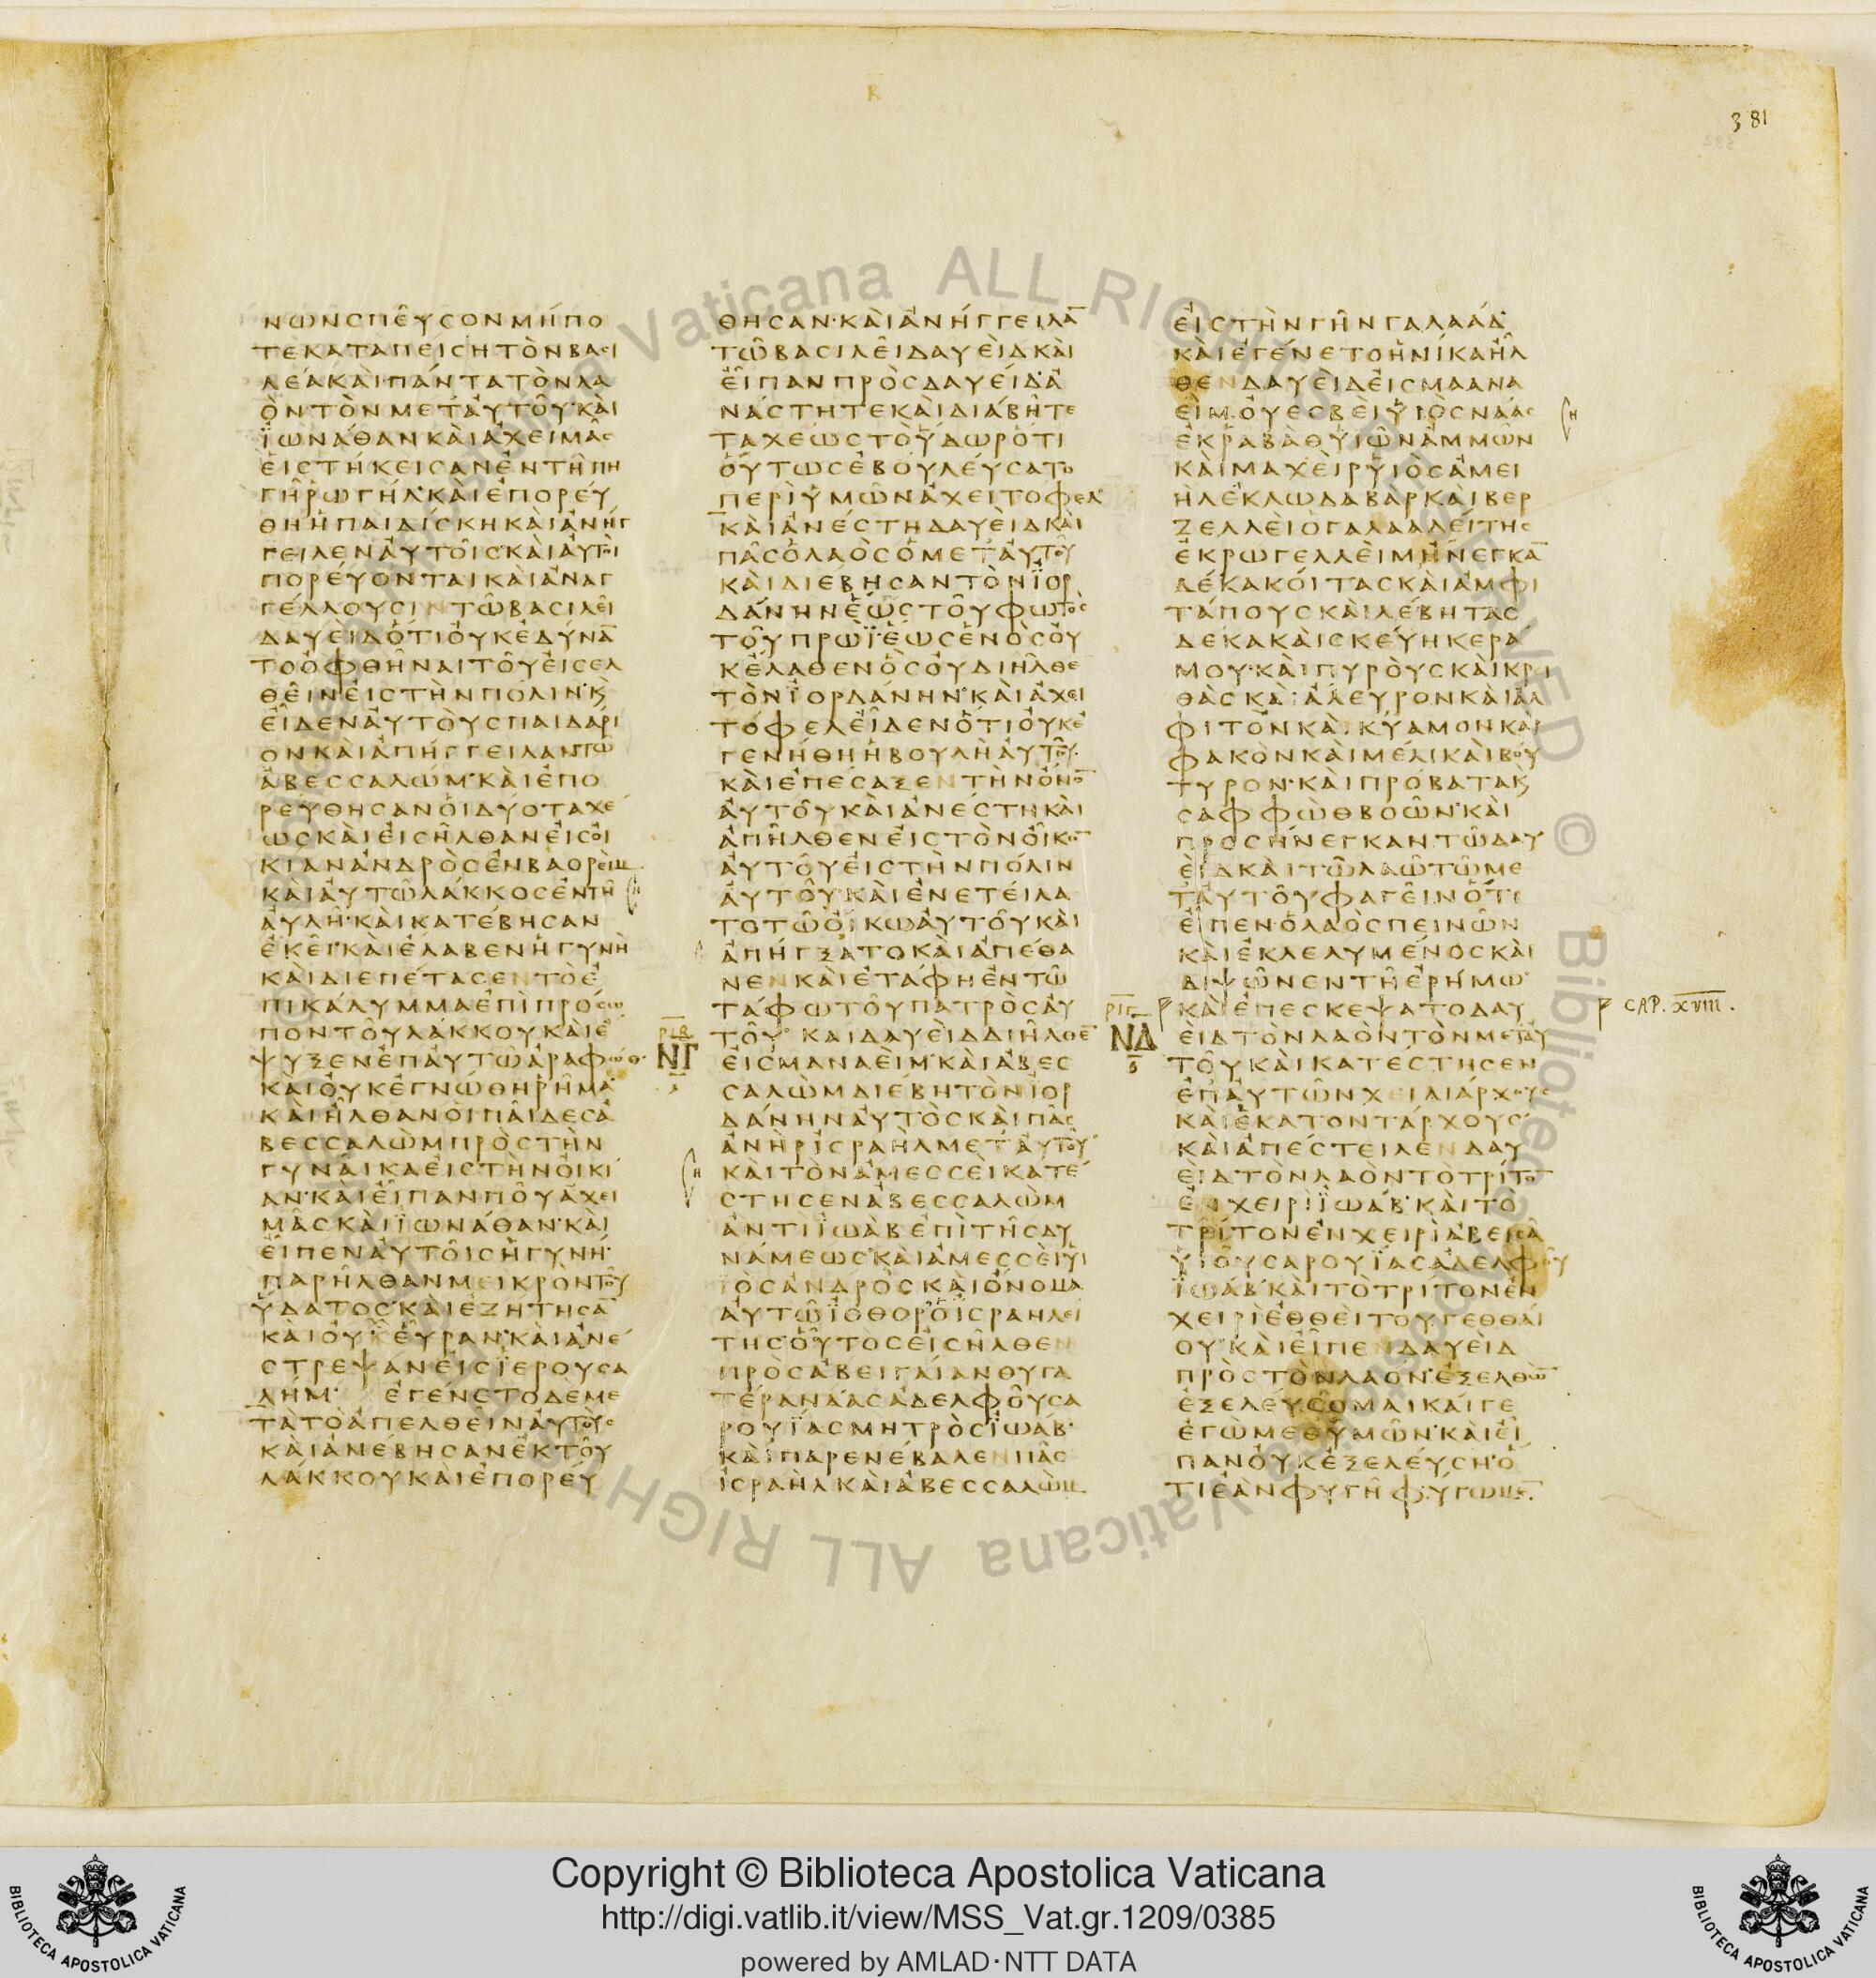 381
ΝΩΝ ΣΠΕΥΣΟΝ ΜΗΠΟ
ΤΕ ΚΑΤΑΠΕΙΣΗ ΤΟΝ ΒΑΣΙ
ΛΕΑ ΚΑΙ ΠΑΝΤΑ ΤΟΝ ΛΑ
ΟΝ ΤΟΝ ΜΕΤ ΑΥΤΟΥ· ΚΑΙ
ΪΩΝΑΘΑΝ ΚΑΙ ΑΧΕΙΜΑΣ
ΕΙΣΤΗΚΕΙΣΑΝ ΕΝ ΤΗ ΠΗ
ΓΗ ΡΩΓΗΛ· ΚΑΙ ΕΠΟΡΕΥ
ΘΗ Η ΠΑΙΔΙΣΚΗ ΚΑΙ ΑΝΗΓ
ΓΕΙΛΕΝ ΑΥΤΟΙΣ· ΚΑΙ ΑΥΤΟΙ
ΠΟΡΕΥΟΝΤΑΙ ΚΑΙ ΑΝΑΓ
ΓΕΛΛΟΥΣΙΝ ΤΩ ΒΑΣΙΛΕΙ
ΔΑΥΕΙΔ ΟΤΙ ΟΥΚ ΕΔΥΝΑ̅
ΤΟ ΟΦΘΗΝΑΙ ΤΟΥ ΕΙΣΕΛ
ΘΕΙΝ ΕΙΣ ΤΗΝ ΠΟΛΙΝ· Ϗ
ΕΙΔΕΝ ΑΥΤΟΥΣ ΠΑΙΔΑΡΙ
ΟΝ ΚΑΙ ΑΠΗΓΓΕΙΛΑΝ ΤΩ
ΑΒΕΣΣΑΛΩΜ· ΚΑΙ ΕΠΟ
ΡΕΥΘΗΣΑΝ ΟΙ ΔΥΟ ΤΑΧΕ
ΩΣ ΚΑΙ ΕΙΣΗΛΘΑΝ ΕΙΣ ΟΙ
ΚΙΑΝ ΑΝΔΡΟΣ ΕΝ ΒΑΟΡΕΙΜ
ΚΑΙ ΑΥΤΩ ΛΑΚΚΟΣ ΕΝ ΤΗ
ΑΥΛΗ· ΚΑΙ ΚΑΤΕΒΗΣΑΝ
ΕΚΕΙ· ΚΑΙ ΕΛΑΒΕΝ Η ΓΥΝΗ
ΚΑΙ ΔΙΕΠΕΤΑΣΕΝ ΤΟ Ε
ΠΙΚΑΛΥΜΜΑ ΕΠΙ ΠΡΟΣΩ
ΠΟΝ ΤΟΥ ΛΑΚΚΟΥ ΚΑΙ Ε
ΨΥΞΕΝ ΕΠ ΑΥΤΩ ΑΡΑΦΩΘ·
ΚΑΙ ΟΥΚ ΕΓΝΩΘΗ ΡΗΜΑ·
ΚΑΙ ΗΛΘΑΝ ΟΙ ΠΑΙΔΕΣ Α
ΒΕΣΣΑΛΩΜ ΠΡΟΣ ΤΗΝ
ΓΥΝΑΙΚΑ ΕΙΣ ΤΗΝ ΟΙΚΙ
ΑΝ· ΚΑΙ ΕΙΠΑΝ ΠΟΥ ΑΧΕΙ
ΜΑΣ ΚΑΙ ΪΩΝΑΘΑΝ· ΚΑΙ
ΕΙΠΕΝ ΑΥΤΟΙΣ Η ΓΥΝΗ·
ΠΑΡΗΛΘΑΝ ΜΕΙΚΡΟΝ ΤΟΥ
ΫΔΑΤΟΣ· ΚΑΙ ΕΖΗΤΗΣΑ̅
ΚΑΙ ΟΥΚ ΕΥΡΑΝ· ΚΑΙ ΑΝΕ
ΣΤΡΕΨΑΝ ΕΙΣ ΪΕΡΟΥΣΑ
ΛΗΜ· ΕΓΕΝΕΤΟ ΔΕ ΜΕ
ΤΑ ΤΟ ΑΠΕΛΘΕΙΝ ΑΥΤΟΥΣ
ΚΑΙ ΑΝΕΒΗΣΑΝ ΕΚ ΤΟΥ
ΛΑΚΚΟΥ ΚΑΙ ΕΠΟΡΕΥ
ΘΗΣΑΝ· ΚΑΙ ΑΝΗΓΓΕΙΛΑ̅
ΤΩ ΒΑΣΙΛΕΙ ΔΑΥΕΙΔ ΚΑΙ
ΕΙΠΑΝ ΠΡΟΣ ΔΑΥΕΙΔ· Α
ΝΑΣΤΗΤΕ ΚΑΙ ΔΙΑΒΗΤΕ
ΤΑΧΕΩΣ ΤΟ ΫΔΩΡ ΟΤΙ
ΟΥΤΩΣ ΕΒΟΥΛΕΥΣΑΤΟ
ΠΕΡΙ ΥΜΩΝ ΑΧΕΙΤΟΦΕΛ·
ΚΑΙ ΑΝΕΣΤΗ ΔΑΥΕΙΔ ΚΑΙ
ΠΑΣ Ο ΛΑΟΣ Ο ΜΕΤ ΑΥΤΟΥ
ΚΑΙ ΔΙΕΒΗΣΑΝ ΤΟΝ ΪΟΡ
ΔΑΝΗΝ ΕΩΣ ΤΟΥ ΦΩΤΟΣ
ΤΟΥ ΠΡΩΪ· ΕΩΣ ΕΝΟΣ ΟΥ
Κ ΕΛΑΘΕΝ ΟΣ ΟΥ ΔΙΗΛΘΕ
ΤΟΝ ΪΟΡΔΑΝΗΝ· ΚΑΙ ΑΧΕΙ
ΤΟΦΕΛ ΕΙΔΕΝ ΟΤΙ ΟΥΚ Ε
ΓΕΝΗΘΗ Η ΒΟΥΛΗ ΑΥΤΟΥ·
ΚΑΙ ΕΠΕΣΑΞΕΝ ΤΗΝ ΟΝΟ̅
ΑΥΤΟΥ ΚΑΙ ΑΝΕΣΤΗ ΚΑΙ
ΑΠΗΛΘΕΝ ΕΙΣ ΤΟΝ ΟΙΚΟ̅
ΑΥΤΟΥ ΕΙΣ ΤΗΝ ΠΟΛΙΝ
ΑΥΤΟΥ· ΚΑΙ ΕΝΕΤΕΙΛΑ
ΤΟ ΤΩ ΟΙΚΩ ΑΥΤΟΥ ΚΑΙ
ΑΠΗΓΞΑΤΟ ΚΑΙ ΑΠΕΘΑ
ΝΕΝ ΚΑΙ ΕΤΑΦΗ ΕΝ ΤΩ
ΤΑΦΩ ΤΟΥ ΠΑΤΡΟΣ ΑΥ
ΡΙΒ
ΝΓ
ΤΟΥ· ΚΑΙ ΔΑΥΕΙΔ ΔΙΗΛΘΕ̅
ΕΙΣ ΜΑΝΑΕΙΜ· ΚΑΙ ΑΒΕΣ
ΣΑΛΩΜ ΔΙΕΒΗ ΤΟΝ ΪΟΡ
ΔΑΝΗΝ ΑΥΤΟΣ ΚΑΙ ΠΑΣ
ΑΝΗΡ ΙΣΡΑΗΛ ΜΕΤ ΑΥΤΟΥ·
ΚΑΙ ΤΟΝ ΑΜΕΣΣΕΙ ΚΑΤΕ
ΣΤΗΣΕΝ ΑΒΕΣΣΑΛΩΜ
ΑΝΤΙ ΪΩΑΒ ΕΠΙ ΤΗΣ ΔΥ
ΝΑΜΕΩΣ· ΚΑΙ ΑΜΕΣΣΕΙ ΫΙ
ΟΣ ΑΝΔΡΟΣ ΚΑΙ ΟΝΟΜΑ
ΑΥΤΩ ΪΟΘΟΡ Ο ΙΣΡΑΗΛΕΙ
ΤΗΣ ΟΥΤΟΣ ΕΙΣΗΛΘΕΝ
ΠΡΟΣ ΑΒΕΙΓΑΙΑΝ ΘΥΓΑ
ΤΕΡΑ ΝΑΑΣ ΑΔΕΛΦΟΥ ΣΑ
ΡΟΥΪΑΣ ΜΗΤΡΟΣ ΪΩΑΒ·
ΚΑΙ ΠΑΡΕΝΕΒΑΛΕΝ ΠΑΣ
ΙΣΡΑΗΛ ΚΑΙ ΑΒΕΣΣΑΛΩΜ
ΕΙΣ ΤΗΝ ΓΗΝ ΓΑΛΑΑΔ·
ΚΑΙ ΕΓΕΝΕΤΟ ΗΝΙΚΑ ΗΛ
ΘΕΝ ΔΑΥΕΙΔ ΕΙΣ ΜΑΑΝΑ
ΕΙΜ ΟΥΕΣΒΕΙ ΫΙΟΣ ΝΑΑΣ
ΕΚ ΡΑΒΑΘ ΫΙΩΝ ΑΜΜΩΝ
ΚΑΙ ΜΑΧΕΙΡ ΫΙΟΣ ΑΜΕΙ
ΗΛ ΕΚ ΛΩΔΑΒΑΡ ΚΑΙ ΒΕΡ
ΖΕΛΛΕΙ Ο ΓΑΛΑΑΔΕΙΤΗΣ
ΕΚ ΡΩΓΕΛΛΕΙΜ ΗΝΕΓΚΑ̅
ΔΕΚΑ ΚΟΙΤΑΣ ΚΑΙ ΑΜΦΙ
ΤΑΠΟΥΣ ΚΑΙ ΛΕΒΗΤΑΣ
ΔΕΚΑ ΚΑΙ ΣΚΕΥΗ ΚΕΡΑ
ΜΟΥ· ΚΑΙ ΠΥΡΟΥΣ ΚΑΙ ΚΡΙ
ΘΑΣ ΚΑΙ ΑΛΕΥΡΟΝ ΚΑΙ ΑΛ
ΦΙΤΟΝ ΚΑΙ ΚΥΑΜΟΝ ΚΑΙ
ΦΑΚΟΝ ΚΑΙ ΜΕΛΙ ΚΑΙ ΒΟΥ
ΤΥΡΟΝ· ΚΑΙ ΠΡΟΒΑΤΑ Ϗ
ΣΑΦΦΩΘ ΒΟΩΝ· ΚΑΙ
ΠΡΟΣΗΝΕΓΚΑΝ ΤΩ ΔΑΥ
ΕΙΔ ΚΑΙ ΤΩ ΛΑΩ ΤΩ ΜΕ
Τ ΑΥΤΟΥ ΦΑΓΕΙΝ ΟΤΙ
ΕΙΠΕΝ Ο ΛΑΟΣ ΠΕΙΝΩΝ
ΚΑΙ ΕΚΛΕΛΥΜΕΝΟΣ ΚΑΙ
ΔΙΨΩΝ ΕΝ ΤΗ ΕΡΗΜΩ·
ΡΙΓ
ΝΔ
ΚΑΙ ΕΠΕΣΚΕΨΑΤΟ ΔΑΥ
CAP. XVIII.
ΕΙΔ ΤΟΝ ΛΑΟΝ ΤΟΝ ΜΕΤ ΑΥ
ΤΟΥ ΚΑΙ ΚΑΤΕΣΤΗΣΕΝ
ΕΠ ΑΥΤΩΝ ΧΕΙΛΙΑΡΧΟΥΣ
ΚΑΙ ΕΚΑΤΟΝΤΑΡΧΟΥΣ·
ΚΑΙ ΑΠΕΣΤΕΙΛΕΝ ΔΑΥ
ΕΙΔ ΤΟΝ ΛΑΟΝ ΤΟ ΤΡΙΤΟ̅
ΕΝ ΧΕΙΡΙ ΪΩΑΒ· ΚΑΙ ΤΟ
ΤΡΙΤΟΝ ΕΝ ΧΕΙΡΙ ΑΒΕΙΣΑ
ΫΙΟΥ ΣΑΡΟΥΪΑΣ ΑΔΕΛΦΟΥ
ΪΩΑΒ· ΚΑΙ ΤΟ ΤΡΙΤΟΝ ΕΝ
ΧΕΙΡΙ ΕΘΘΕΙ ΤΟΥ ΓΕΘΘΑΙ
ΟΥ· ΚΑΙ ΕΙΠΕΝ ΔΑΥΕΙΔ
ΠΡΟΣ ΤΟΝ ΛΑΟΝ· ΕΞΕΛΘΩ̅
ΕΞΕΛΕΥΣΟΜΑΙ ΚΑΙ ΓΕ
ΕΓΩ ΜΕΘ ΥΜΩΝ· ΚΑΙ ΕΙ
ΠΑΝ ΟΥΚ ΕΞΕΛΕΥΣΗ· Ο
ΤΙ ΕΑΝ ΦΥΓΗ ΦΥΓΩΜΕ̅
Vaticana ALL RIGHTS RESERVED © Biblioteca Apostolica Vaticana ALL RIGHTS
Copyright © Biblioteca Apostolica Vaticana
http://digi.vatlib.it/view/MSS_Vat.gr.1209/0385
powered by AMLAD·NTT DATA
BIBLIOTECA APOSTOLICA VATICANA
BIBLIOTECA APOSTOLICA VATICANA